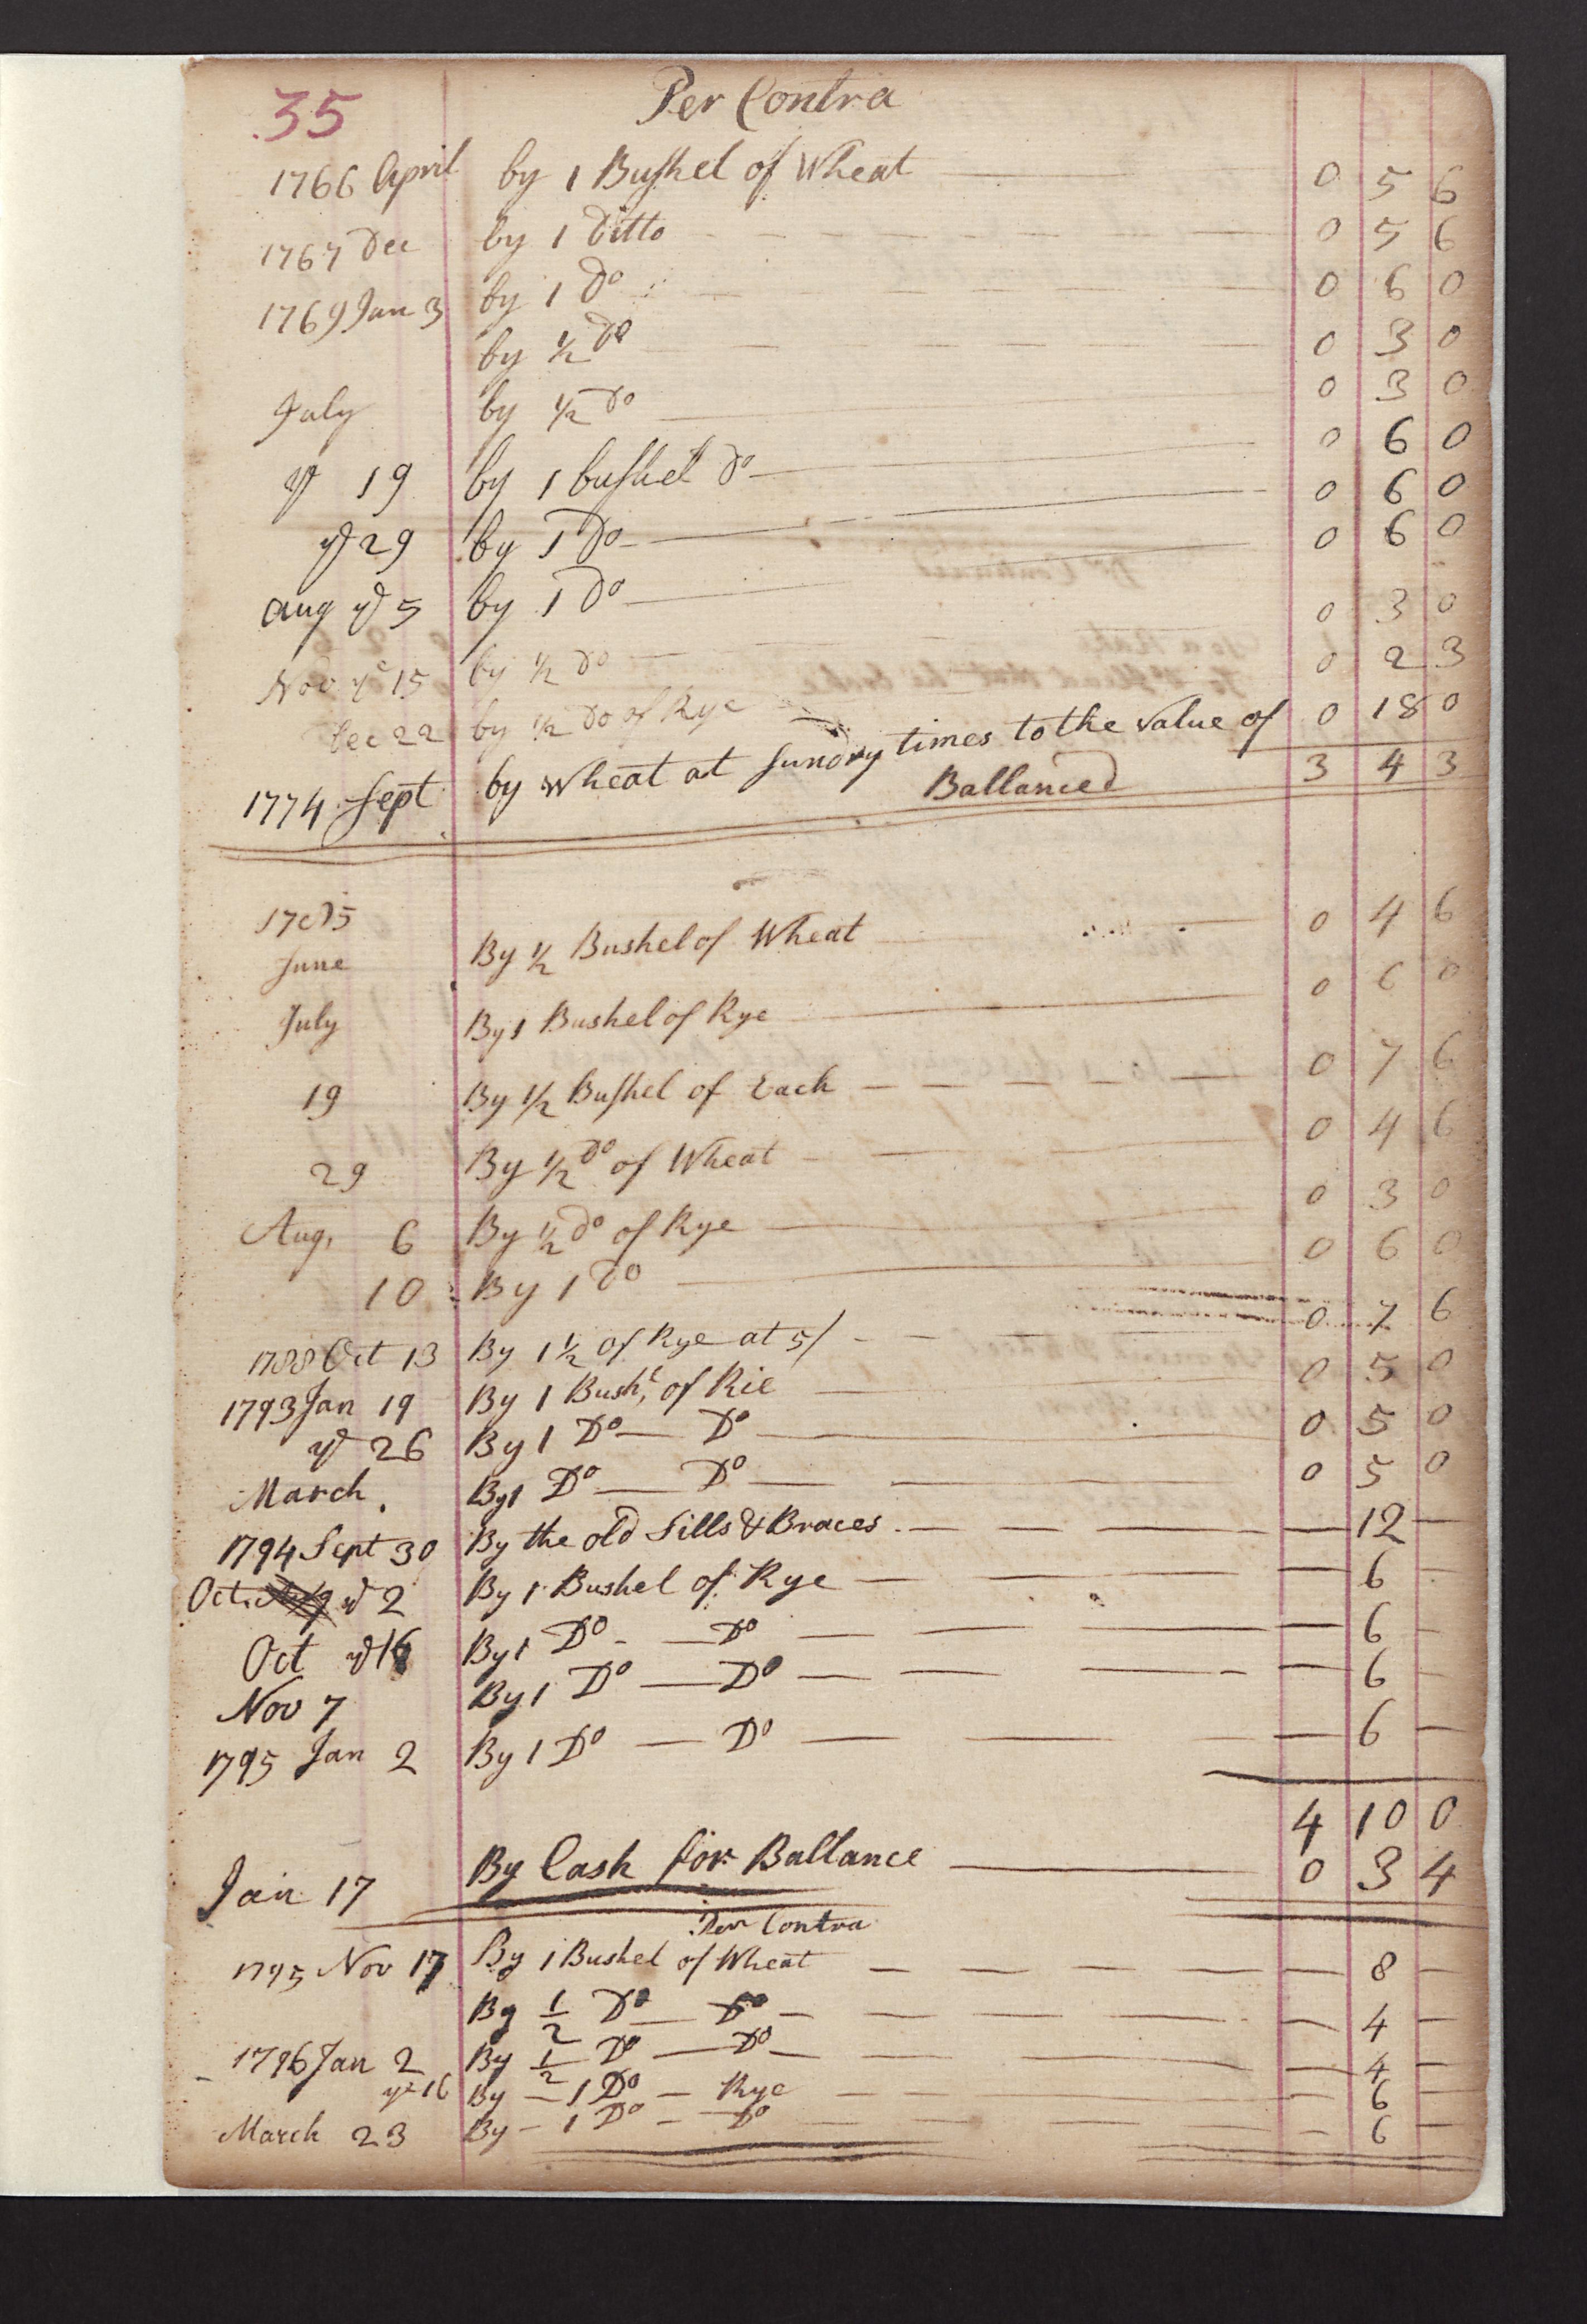 35 Per Contra
1766 April by 1 Bushel of Wheat 0 5 6
1767 Dec by 1 Ditto 0 5 6
1769 Jan 3 by 1 Do 0 6 0
by ½ Do 0 3 0
July by ½ Do 0 3 0
ye 19 by 1 bushel Do 0 6 0
ye 29 by 1 Do 0 6 0
Aug ye 5 by 1 Do 0 6 0
Nov ye 15 by ½ Do 0 3 0
Dec 22 by ½ Do of Rye 0 2 3
1774 Sept by Wheat at Sundry times to the Value of 0 18 0
Ballanced 3 4 3
June By ½ Bushel of Wheat 0 4 6
July By 1 Bushel of Rye 0 6 0
19 By ½ Bushel of Each 0 7 6
29 By ½ Do of Wheat 0 4 6
Aug, 6 By ½ Do of Rye 0 3 0
10 By 1 Do 0 6 0
1788 Oct 13 By 1½ of Rye at 5/ 0 7 6
1793 Jan 19 By 1 Bushl, of Rie 0 5 0
ye 26 By 1 Do — Do 0 5 0
March. By 1 Do — Do 0 5 0
1794 Sept 30 By the old Sills & Braces. — 12 —
Oct. ye 2 By 1 Bushel of Rye — 6 —
Oct ye 16 By 1 Do - — Do — 6 —
Nov 7 By 1 Do — Do — 6 —
1795 Jan 2 By 1 Do — Do — 6 —
4 10 0
Jan 17 By Cash for Ballance 0 3 4
Per Contra
1795 Nov 17 By 1 Bushel of Wheat — 8 —
By ½ Do — Do — 4 —
1796 Jan 2 By ½ Do — Do — 4 —
ye 16 By — 1 Do — Rye — 6 —
March 23 By — 1 Do — Do — 6 —